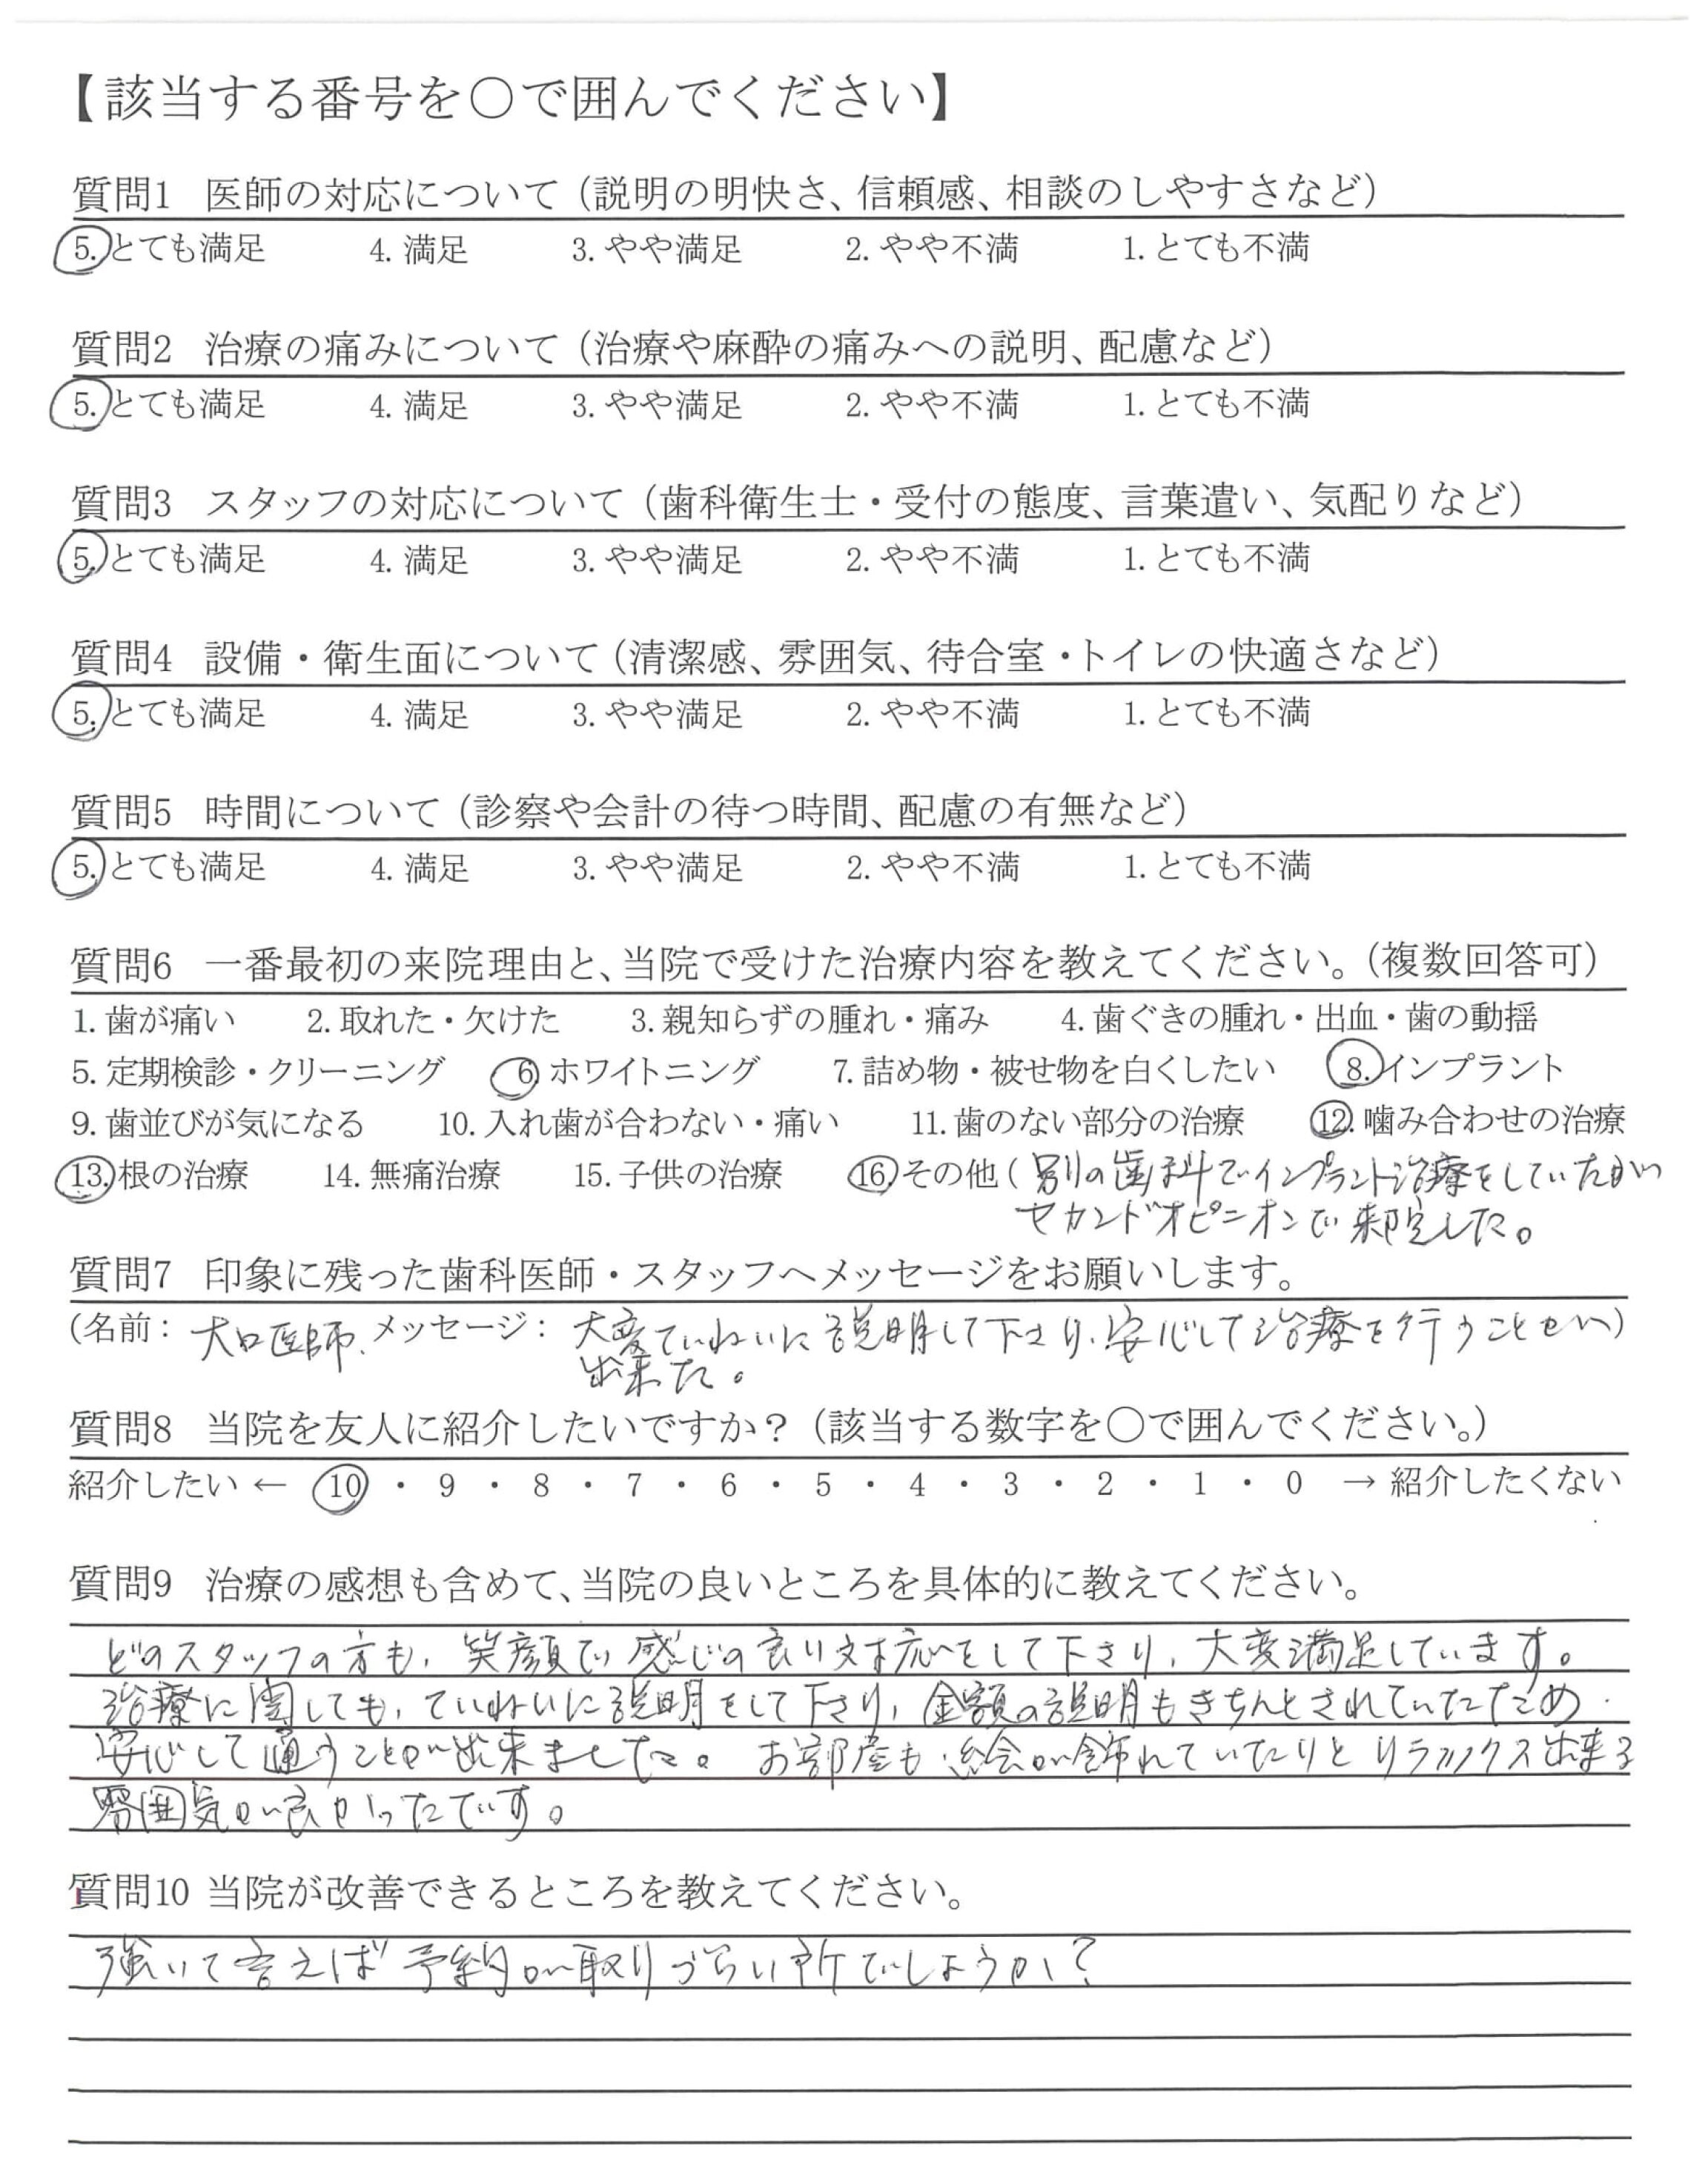 【該当する番号を○で囲んでください】
質問1 医師の対応について（説明の明快さ、信頼感、相談のしやすさなど）
5. とても満足 4. 満足 3. やや満足 2. やや不満 1. とても不満
質問2 治療の痛みについて（治療や麻酔の痛みへの説明、配慮など）
5. とても満足 4. 満足 3. やや満足 2. やや不満 1. とても不満
質問3 スタッフの対応について（歯科衛生士・受付の態度、言葉遣い、気配りなど）
5. とても満足 4. 満足 3. やや満足 2. やや不満 1. とても不満
質問4 設備・衛生面について（清潔感、雰囲気、待合室・トイレの快適さなど）
5. とても満足 4. 満足 3. やや満足 2. やや不満 1. とても不満
質問5 時間について（診察や会計の待つ時間、配慮の有無など）
5. とても満足 4. 満足 3. やや満足 2. やや不満 1. とても不満
質問6 一番最初の来院理由と、当院で受けた治療内容を教えてください。（複数回答可）
1. 歯が痛い 2. 取れた・欠けた 3. 親知らずの腫れ・痛み 4. 歯ぐきの腫れ・出血・歯の動揺
5. 定期検診・クリーニング 6. ホワイトニング 7. 詰め物・被せ物を白くしたい 8. インプラント
9. 歯並びが気になる 10. 入れ歯が合わない・痛い 11. 歯のない部分の治療 12. 噛み合わせの治療
13. 根の治療 14. 無痛治療 15. 子供の治療 16. その他（別の歯科でインプラント治療をしていたが
セカンドオピニオンで来院した。
質問7 印象に残った歯科医師・スタッフへメッセージをお願いします。
（名前：大口医師. メッセージ：大変ていねいに説明して下さり、安心して治療を行うことが）
出来た。
質問8 当院を友人に紹介したいですか？（該当する数字を○で囲んでください。）
紹介したい ← 10 ・ 9 ・ 8 ・ 7 ・ 6 ・ 5 ・ 4 ・ 3 ・ 2 ・ 1 ・ 0 → 紹介したくない
質問9 治療の感想も含めて、当院の良いところを具体的に教えてください。
どのスタッフの方も、笑顔で感じの良い対応をして下さり、大変満足しています。
治療に関しても、ていねいに説明をして下さり、金額の説明もきちんとされていたため
安心して通うことが出来ました。 お部屋も、絵が飾れていたりとリラックス出来る
雰囲気が良かったです。
質問10 当院が改善できるところを教えてください。
強いて言えば 予約が取りづらい所でしょうか？